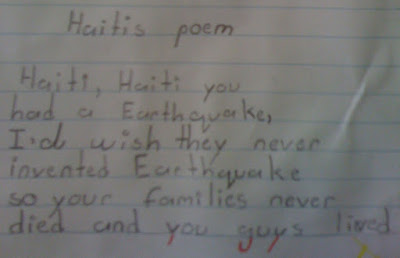 Haitis poem
Haiti, Haiti you
had a Earthquake,
I'd wish they never
invented Earthquake
so your families never
died and you guys lived